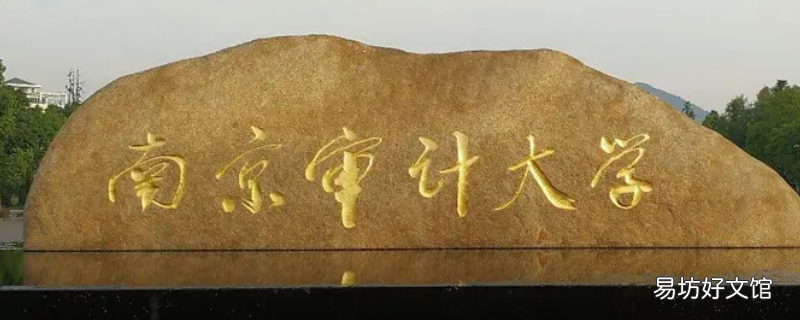 南京审计大学
易坊好文馆